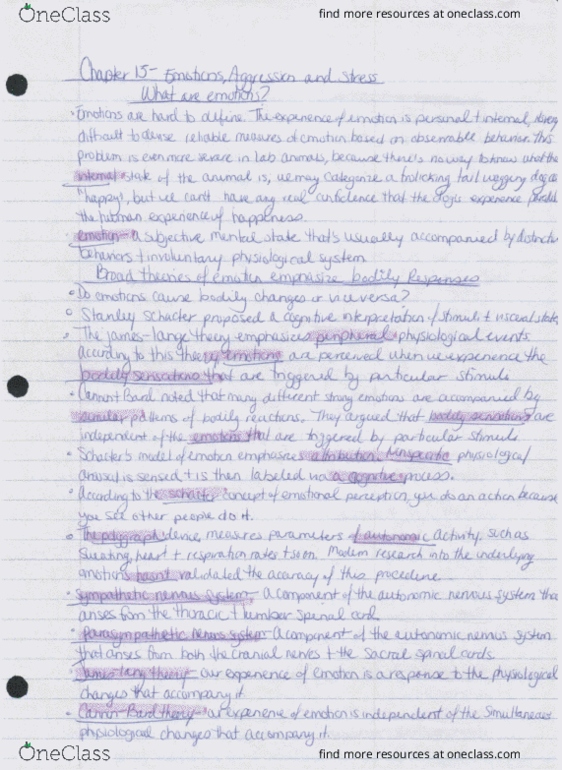 OneClass
find more resources at oneclass.com
Chapter 15- Emotions, Aggression and stress
What are emotions?
• Emotions are hard to define. The experience of emotion is personal + internal,
difficult to devise reliable measures of emotion based on observable behavior. This
problem is even more severe in lab animals, because there's no way to know what the
internal state of the animal is, we may categorize a frolicking tail wagging dog as
"happy", but we can't have any real confidence that the dog's experience
the human experience of happiness.
• emotion- a subjective mental state that's usually accompanied by distinctive
behaviors + involuntary physiological system
Broad theories of emotion emphasize bodily Responses
• Do emotions cause bodily changes or viceversa?
• Stanley Schacter proposed a cognitive interpretation of stimuli + visceral states
• The james-lange theory emphasizes peripheral physiological events
According to this theory emotions are perceived when we experience the
bodily sensations that are triggered by particular stimuli
• Cannon + Bard noted that many different strong emotions are accompanied by
similar patterns of bodily reactions. They argued that bodily sensations are
independent of the emotions that are triggered by particular stimuli
• Schacter's model of emotion emphasizes attribution. Nonspecific physiological
arousal is sensed + is then labeled via a cognitive process.
• According to the schacter concept of emotional perception, you do an action because
you see other people do it.
• The polygraph device, measures parameters of autonomic activity, such as
sweating, heart + respiration rates + so on. Modern research into the underlying
emotions hasn't validated the accuracy of this procedure.
• Sympathetic nervous system- A component of the autonomic nervous system that
arises from the thoracic + lumbar spinal cord.
• parasympathetic nervous system- A component of the autonomic nervous system
that arises from both the cranial nerves + the sacral spinal cords.
• James-lang theory- our experience of emotion is a response to the physiological
changes that accompany it
• Cannon-Bard theory- our experience of emotion is independent of the simultaneous
physiological changes that accompany it.
OneClass
find more resources at oneclass.com